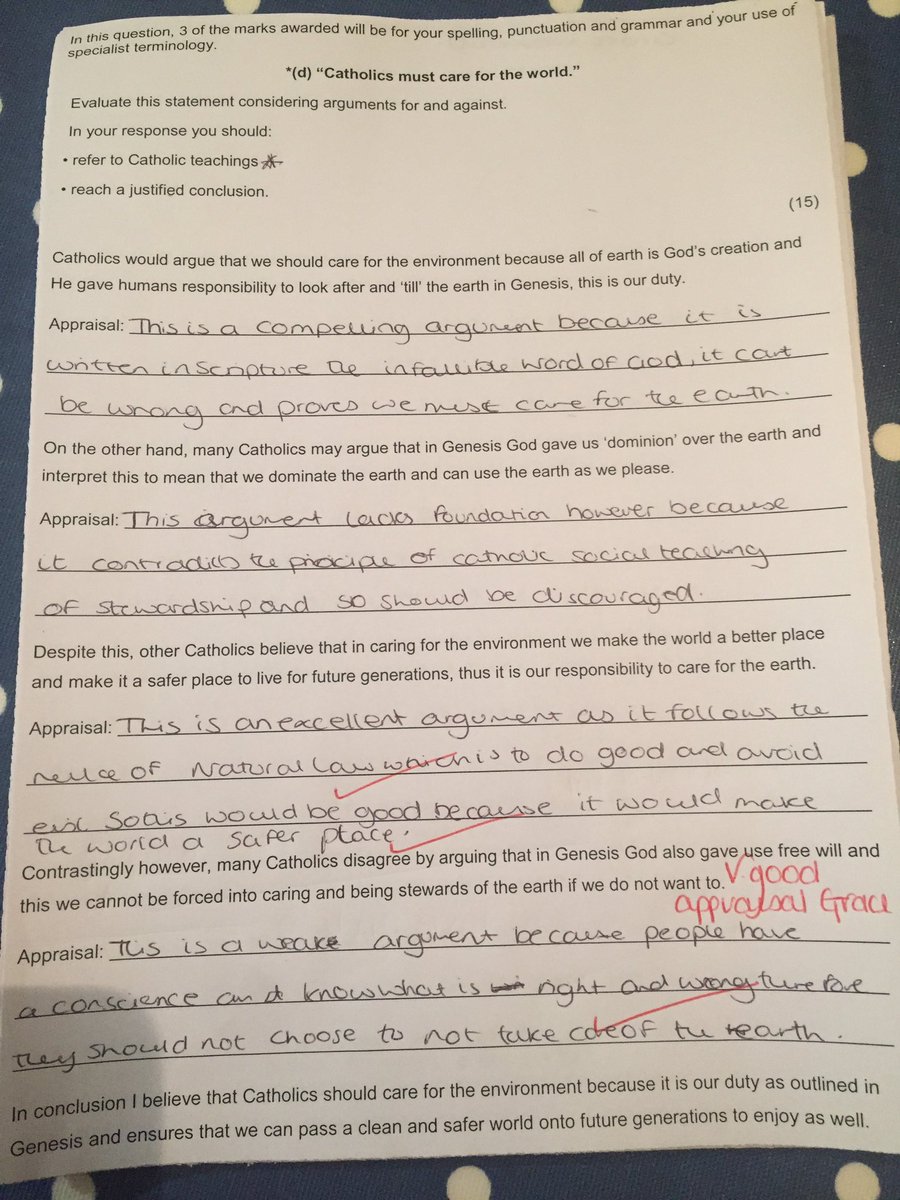 In this question, 3 of the marks awarded will be for your spelling, punctuation and grammar and your use of
specialist terminology.
*(d) “Catholics must care for the world.”
Evaluate this statement considering arguments for and against.
In your response you should:
• refer to Catholic teachings
• reach a justified conclusion.
(15)
Catholics would argue that we should care for the environment because all of earth is God’s creation and
He gave humans responsibility to look after and ‘till’ the earth in Genesis, this is our duty.
Appraisal: This is a compelling argument because it is
written in scripture the infallible word of God, it cant
be wrong and proves we must care for the earth.
On the other hand, many Catholics may argue that in Genesis God gave us ‘dominion’ over the earth and
interpret this to mean that we dominate the earth and can use the earth as we please.
Appraisal: This argument lacks foundation however because
it contradicts the principle of catholic social teaching
of stewardship and so should be discouraged.
Despite this, other Catholics believe that in caring for the environment we make the world a better place
and make it a safer place to live for future generations, thus it is our responsibility to care for the earth.
Appraisal: This is an excellent argument as it follows the
of Natural law which is to do good and avoid
evil. So this would be good because it would make
the world a safer place.
Contrastingly however, many Catholics disagree by arguing that in Genesis God also gave use free will and
this we cannot be forced into caring and being stewards of the earth if we do not want to.
V. good
appraisal Grace
Appraisal: This is a weak argument because people have
a conscience and know what is right and wrong therefore
they should not choose to not take of the earth.
In conclusion I believe that Catholics should care for the environment because it is our duty as outlined in
Genesis and ensures that we can pass a clean and safer world onto future generations to enjoy as well.